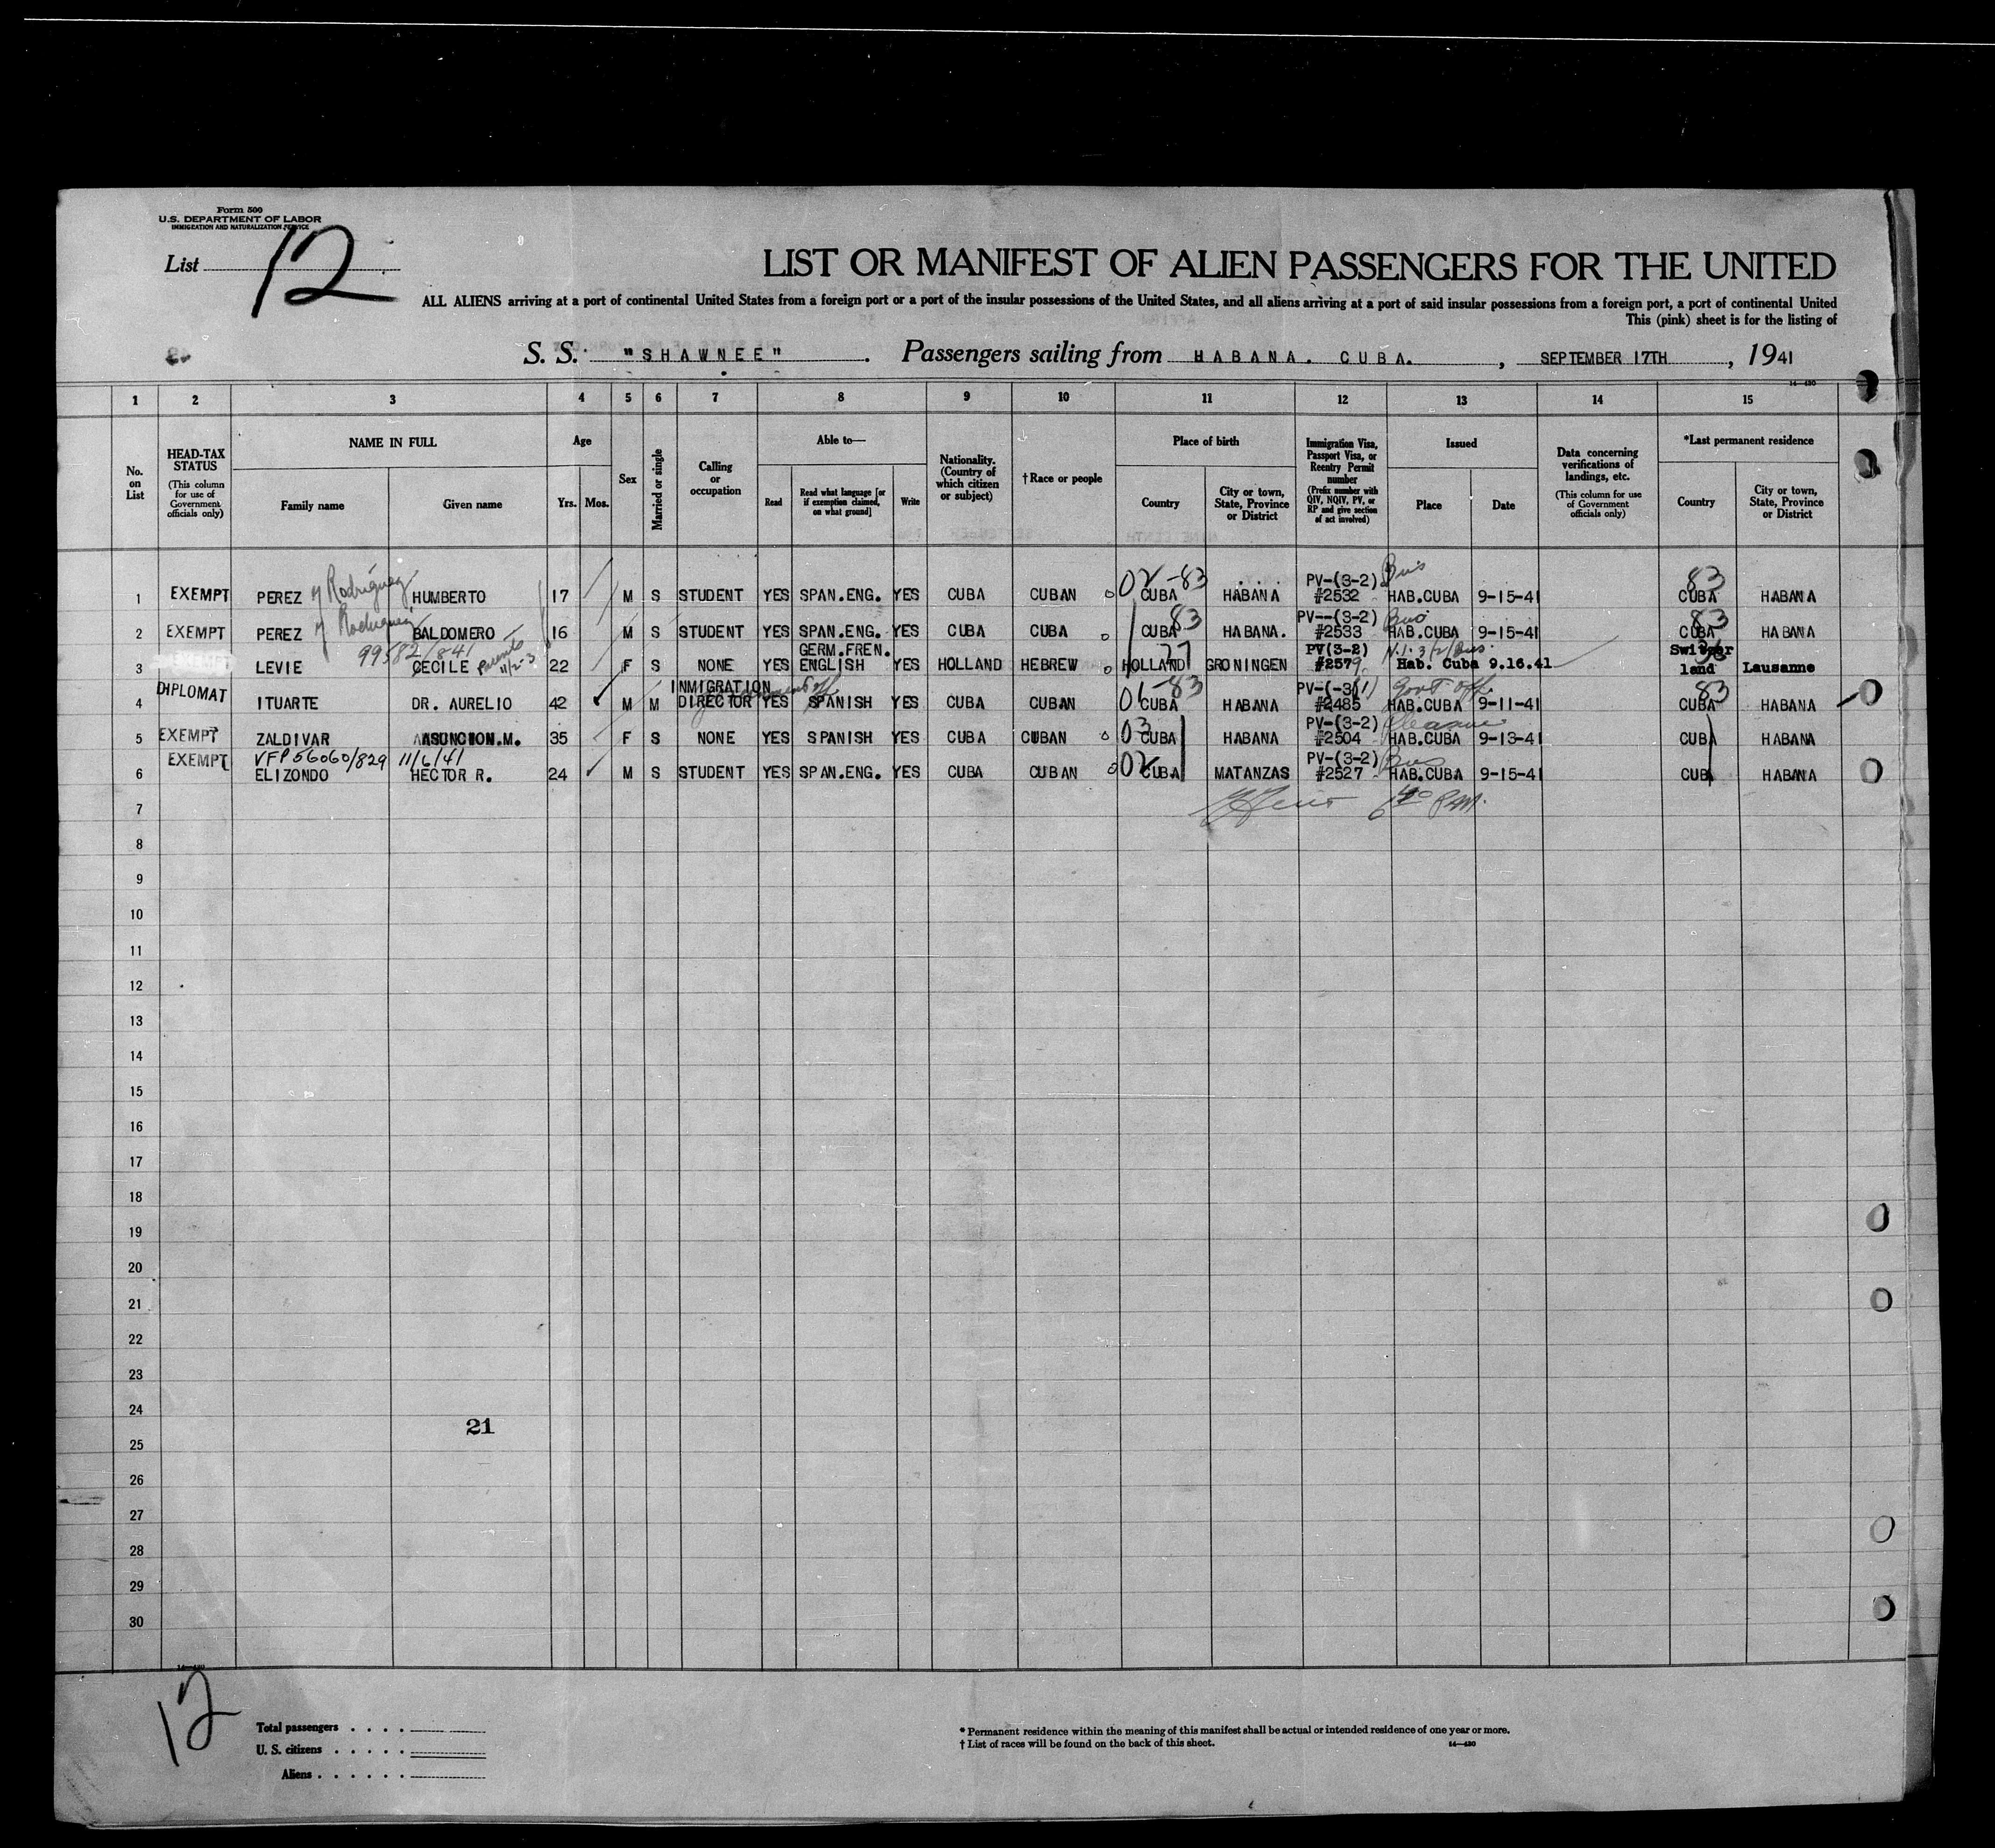 Form 500
U.S. DEPARTMENT OF LABOR
IMMIGRATION AND NATURALIZATION SERVICE
List 12
LIST OR MANIFEST OF ALIEN PASSENGERS FOR THE UNITED
ALL ALIENS arriving at a port of continental United States from a foreign port or a port of the insular possessions of the United States, and all aliens arriving at a port of said insular possessions from a foreign port, a port of continental United
This (pink) sheet is for the listing of
S. S. "SHAWNEE" . Passengers sailing from HABANA. CUBA. , SEPTEMBER 17TH , 1941
14—430
1 2 3 4 5 6 7 8 9 10 11 12 13 14 15
No. on List
HEAD-TAX STATUS (This column for use of Government officials only)
NAME IN FULL
Family name
Given name
Age
Yrs. Mos.
Sex
Married or single
Calling or occupation
Able to—
Read
Read what language [or if exemption claimed, on what ground]
Write
Nationality. (Country of which citizen or subject)
†Race or people
Place of birth
Country
City or town, State, Province or District
Immigration Visa, Passport Visa, or Reentry Permit number (Prefix number with QIV, NQIV, PV, or RP and give section of act involved)
Issued
Place
Date
Data concerning verifications of landings, etc. (This column for use of Government officials only)
*Last permanent residence
Country
City or town, State, Province or District
y Rodríguez 02-83 PV-(3-2) Bus 83
1 EXEMPT PEREZ HUMBERTO 17 M S STUDENT YES SPAN.ENG. YES CUBA CUBAN CUBA HABANA #2532 HAB.CUBA 9-15-41 CUBA HABANA
y Rodriguez 83 PV--(3-2) Bus 83
2 EXEMPT PEREZ BALDOMERO 16 M S STUDENT YES SPAN.ENG. YES CUBA CUBA CUBA HABANA. #2533 HAB.CUBA 9-15-41 CUBA HABANA
99582/841 11/2-3 GERM.FREN. 77 PV(3-2) Switzer
3 EXEMPT LEVIE CECILE 22 F S NONE YES ENGLISH YES HOLLAND HEBREW HOLLAND GRONINGEN #2579 Hab. Cuba 9.16.41 land Lausanne
INMIGRATION 01-83 Govt off. 83
4 DIPLOMAT ITUARTE DR. AURELIO 42 M M DIRECTOR YES SPANISH YES CUBA CUBAN CUBA HABANA #2485 HAB.CUBA 9-11-41 CUBA HABANA
03 PV-(3-2)
5 EXEMPT ZALDIVAR ASUNCION.M. 35 F S NONE YES SPANISH YES CUBA CUBAN CUBA HABANA #2504 HAB.CUBA 9-13-41 CUBA HABANA
VFP56060/829 11/6/41 02 PV-(3-2) Bus
6 EXEMPT ELIZONDO HECTOR R. 24 M S STUDENT YES SPAN.ENG. YES CUBA CUBAN CUBA MATANZAS #2527 HAB.CUBA 9-15-41 CUBA HABANA
7
8
9
10
11
12
13
14
15
16
17
18
19
20
21
22
23
24
21
25
26
27
28
29
30
12
Total passengers . . . .
U. S. citizens . . . . .
Aliens . . . . . .
* Permanent residence within the meaning of this manifest shall be actual or intended residence of one year or more.
† List of races will be found on the back of this sheet.
14—430